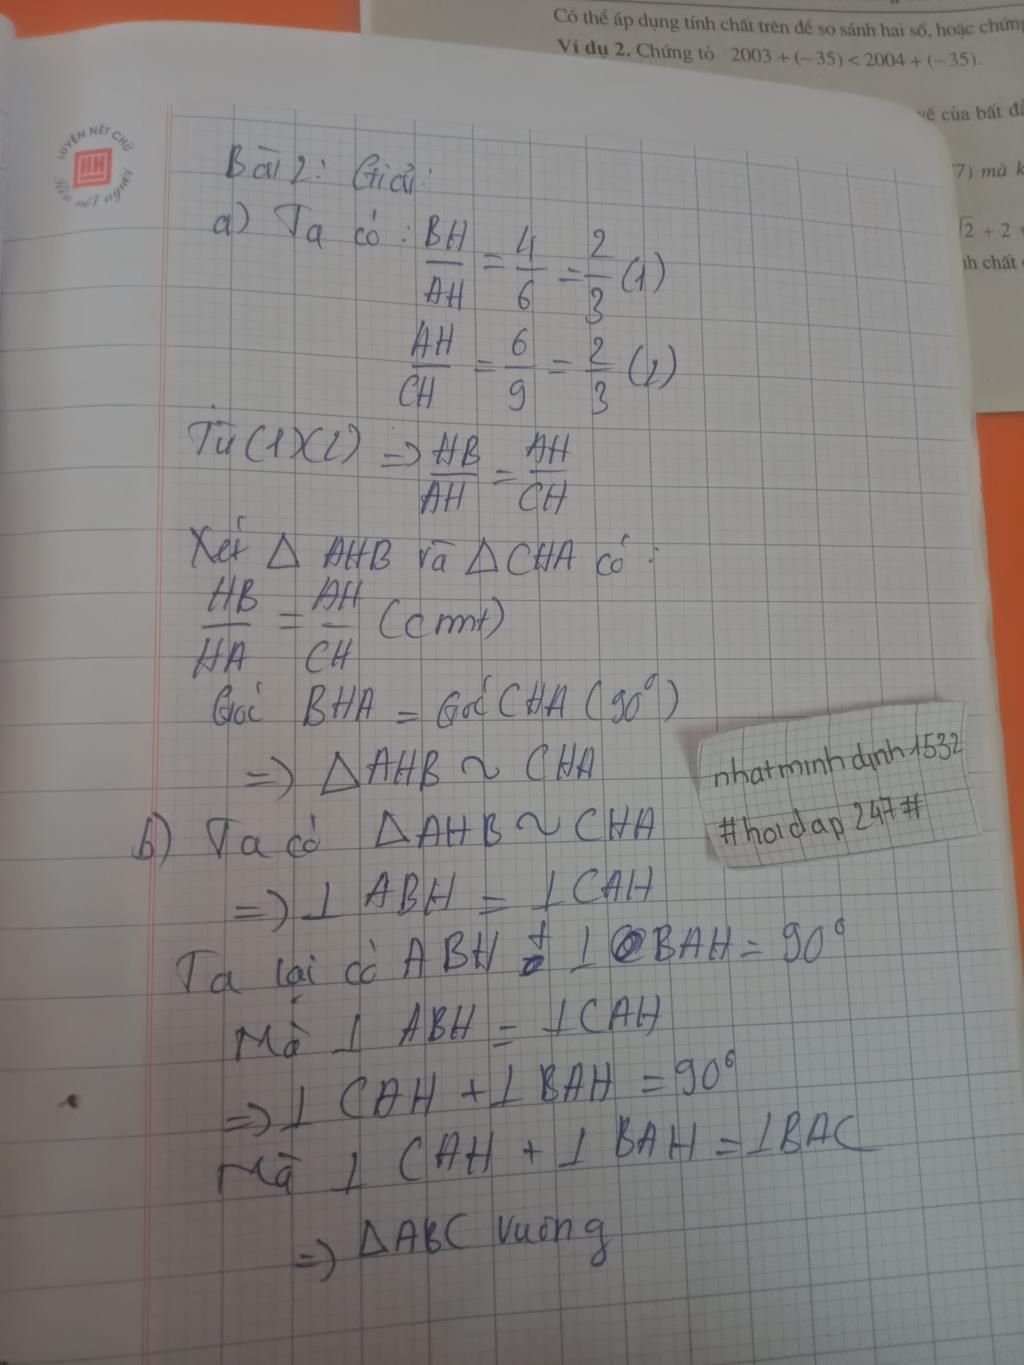 Có thể áp dụng tính chất trên để so sánh hai số, hoặc chứng
Ví dụ 2. Chứng tỏ 2003 + (−35) < 2004 + (−35).
vế của bất đẳ
7) mà k
√2 + 2
nh chất
LUYỆN NÉT CHỮ
HH
Rèn nết người
Bài 2: Giải:
a) Ta có: BH/AH = 4/6 = 2/3 (1)
AH/CH = 6/9 = 2/3 (2)
Từ (1)(2) => HB/AH = AH/CH
Xét Δ AHB và Δ CHA có:
HB/HA = AH/CH (cmt)
Góc BHA = Góc CHA (90⁰)
=> ΔAHB ~ CHA
nhatminhdynh1532
#hoidap247#
b) Ta có ΔAHB ~ CHA
=> ⊥ ABH = ⊥ CAH
Ta lại có ABH + ⊥ BAH = 90⁰
Mà ⊥ ABH = ⊥ CAH
=> ⊥ CAH + ⊥ BAH = 90⁰
Mà ⊥ CAH + ⊥ BAH = ⊥ BAC
=> ΔABC vuông